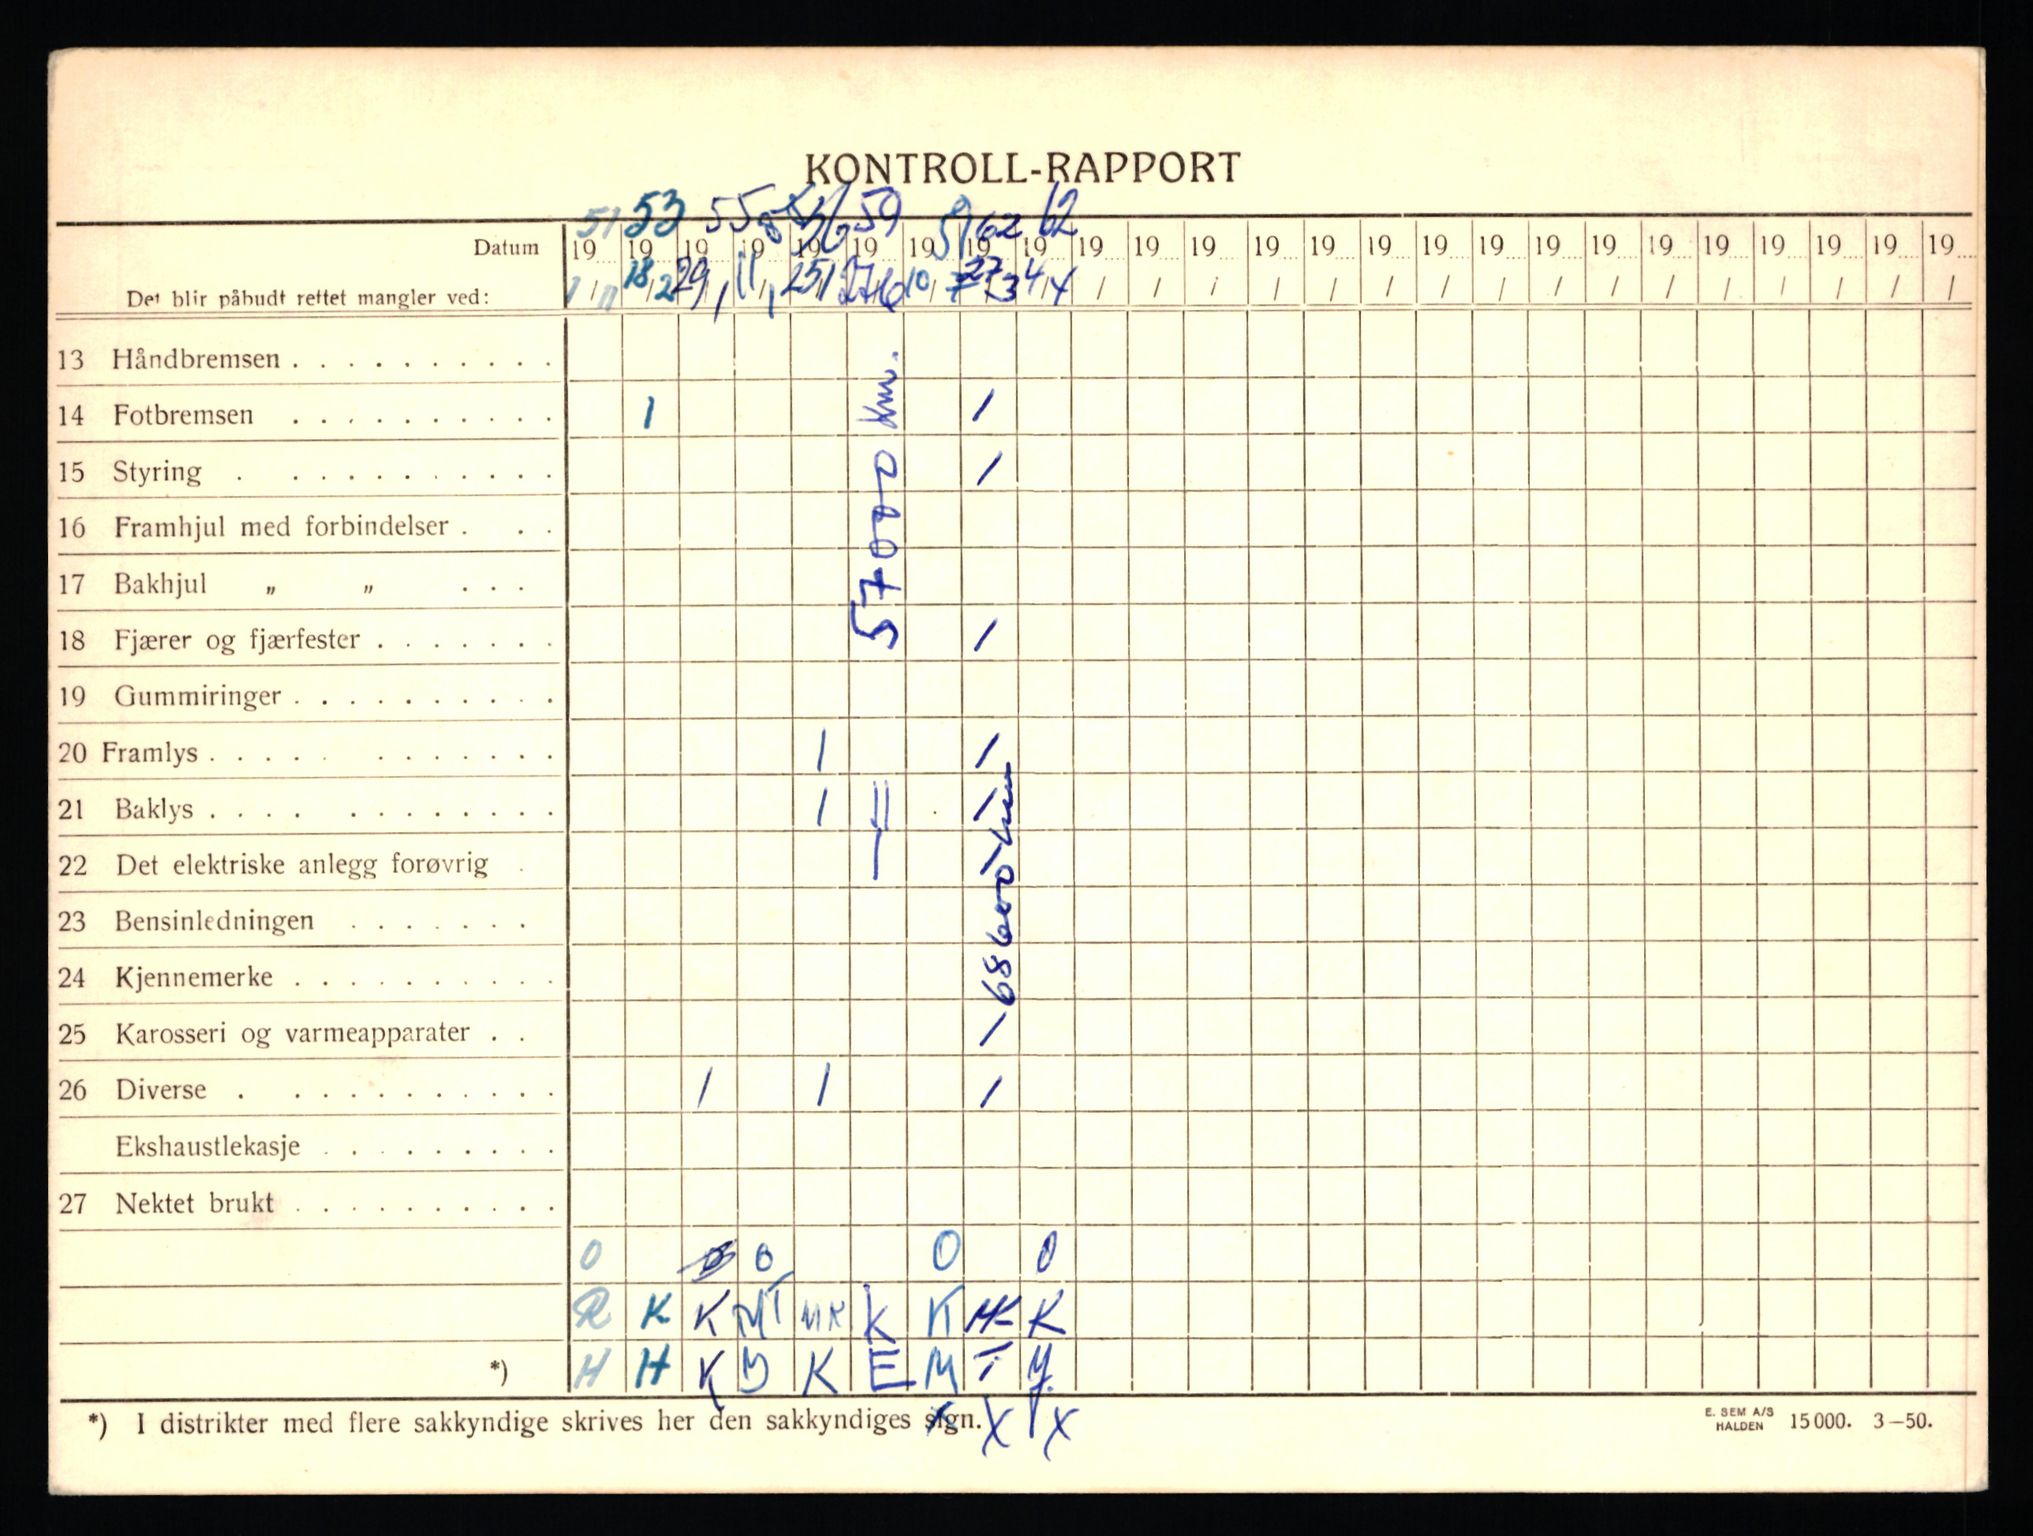 KONTROLL-RAPPORT
51 53 55 56 59 59 62 62
Datum 19 19 19 19 19 19 19 19 19 19 19 19 19 19 19 19 19 19 19 19 19 19 19 19 19
Det blir påbudt rettet mangler ved: 1/11 18/2 29/1 11/1 25/1 27/6 10/7 27/3 4/4 / / / / / / / / / / / / / / / /
13 Håndbremsen . . . . . . . . . .
14 Fotbremsen . . . . . . . . . . 1 /
15 Styring . . . . . . . . . . . /
16 Framhjul med forbindelser . . .
17 Bakhjul „ „ . . .
57000 km.
18 Fjærer og fjærfester . . . . . . . /
19 Gummiringer . . . . . . . . . .
20 Framlys . . . . . . . . . . . 1 /
21 Baklys . . . . . . . . . . . . 1 /
22 Det elektriske anlegg forøvrig .
68600 km
23 Bensinledningen . . . . . . .
24 Kjennemerke . . . . . . . . . .
25 Karosseri og varmeapparater . . /
26 Diverse . . . . . . . . . . . / / /
Ekshaustlekasje . . . . . . . . .
27 Nektet brukt . . . . . . . . . .
0 0 0 0
R K K MT MK K K HK K
*) H H K K E M T
*) I distrikter med flere sakkyndige skrives her den sakkyndiges sign. X X
E. SEM A/S
HALDEN 15000. 3—50.